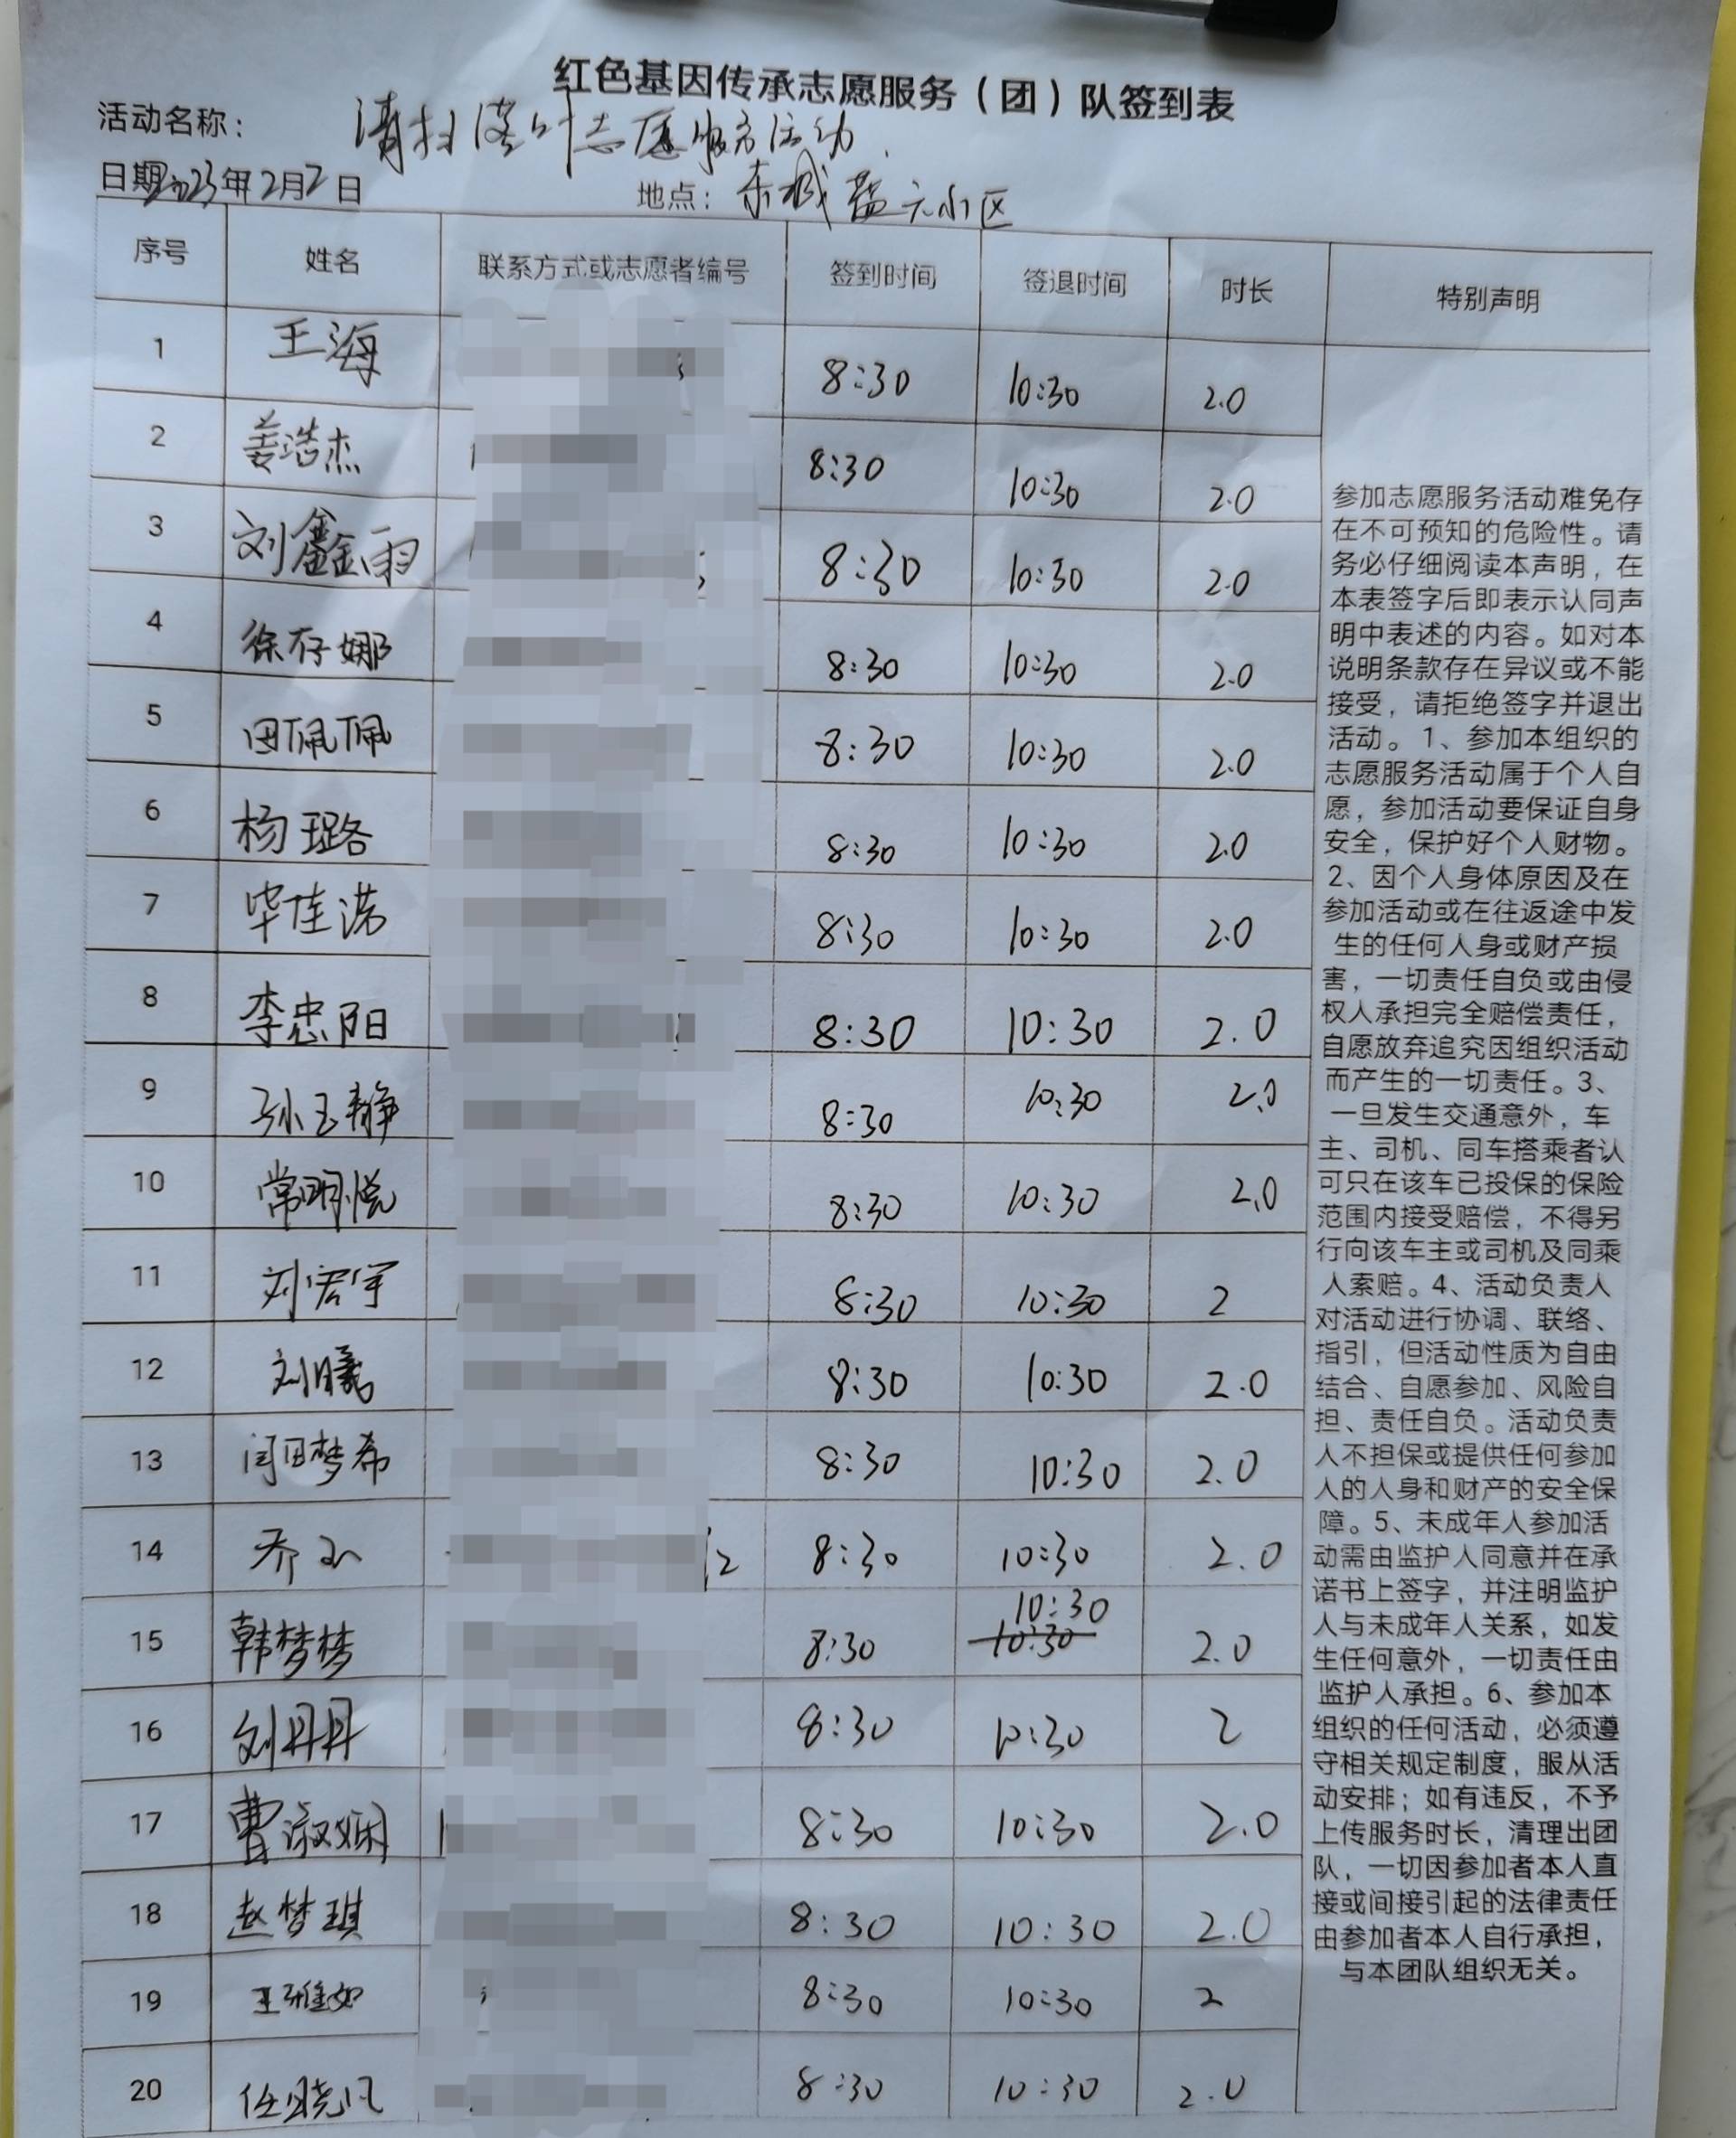 红色基因传承志愿服务（团）队签到表
活动名称： 清扫落叶志愿服务活动
日期2023年2月2日 地点：东城益元小区
序号 姓名 联系方式或志愿者编号 签到时间 签退时间 时长 特别声明
1 王海 8:30 10:30 2.0
2 姜浩杰 8:30 10:30 2.0
3 刘鑫雨 8:30 10:30 2.0
4 徐存娜 8:30 10:30 2.0
5 田佩佩 8:30 10:30 2.0
6 杨璐 8:30 10:30 2.0
7 毕佳诺 8:30 10:30 2.0
8 李忠阳 8:30 10:30 2.0
9 孙玉静 8:30 10:30 2.0
10 常明悦 8:30 10:30 2.0
11 刘宏宇 8:30 10:30 2
12 刘曦 8:30 10:30 2.0
13 闫田梦希 8:30 10:30 2.0
14 乔 8:30 10:30 2.0
15 韩梦梦 8:30 10:30 10:30 2.0
16 刘丹丹 8:30 10:30 2
17 曹淑娴 8:30 10:30 2.0
18 赵梦琪 8:30 10:30 2.0
19 王雅如 8:30 10:30 2
20 任晓凡 8:30 10:30 2.0
参加志愿服务活动难免存
在不可预知的危险性。请
务必仔细阅读本声明，在
本表签字后即表示认同声
明中表述的内容。如对本
说明条款存在异议或不能
接受，请拒绝签字并退出
活动。1、参加本组织的
志愿服务活动属于个人自
愿，参加活动要保证自身
安全，保护好个人财物。
2、因个人身体原因及在
参加活动或在往返途中发
生的任何人身或财产损
害，一切责任自负或由侵
权人承担完全赔偿责任，
自愿放弃追究因组织活动
而产生的一切责任。3、
一旦发生交通意外，车
主、司机、同车搭乘者认
可只在该车已投保的保险
范围内接受赔偿，不得另
行向该车主或司机及同乘
人索赔。4、活动负责人
对活动进行协调、联络、
指引，但活动性质为自由
结合、自愿参加、风险自
担、责任自负。活动负责
人不担保或提供任何参加
人的人身和财产的安全保
障。5、未成年人参加活
动需由监护人同意并在承
诺书上签字，并注明监护
人与未成年人关系，如发
生任何意外，一切责任由
监护人承担。6、参加本
组织的任何活动，必须遵
守相关规定制度，服从活
动安排；如有违反，不予
上传服务时长，清理出团
队，一切因参加者本人直
接或间接引起的法律责任
由参加者本人自行承担，
与本团队组织无关。